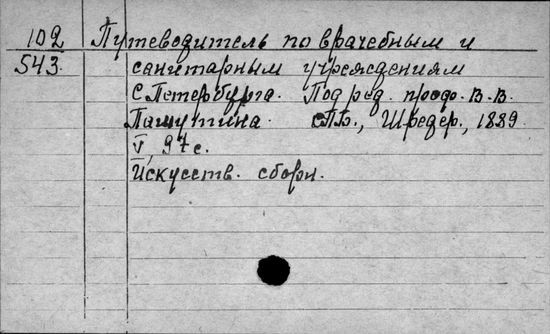 102 Путеводитель по врачебным и
543. санитарным учреждениям
С Петербурга. Под ред. проф. В. В.
Пашутина. СПБ., Шредер., 1889.
V, 97 с.
Искусств. сборн.